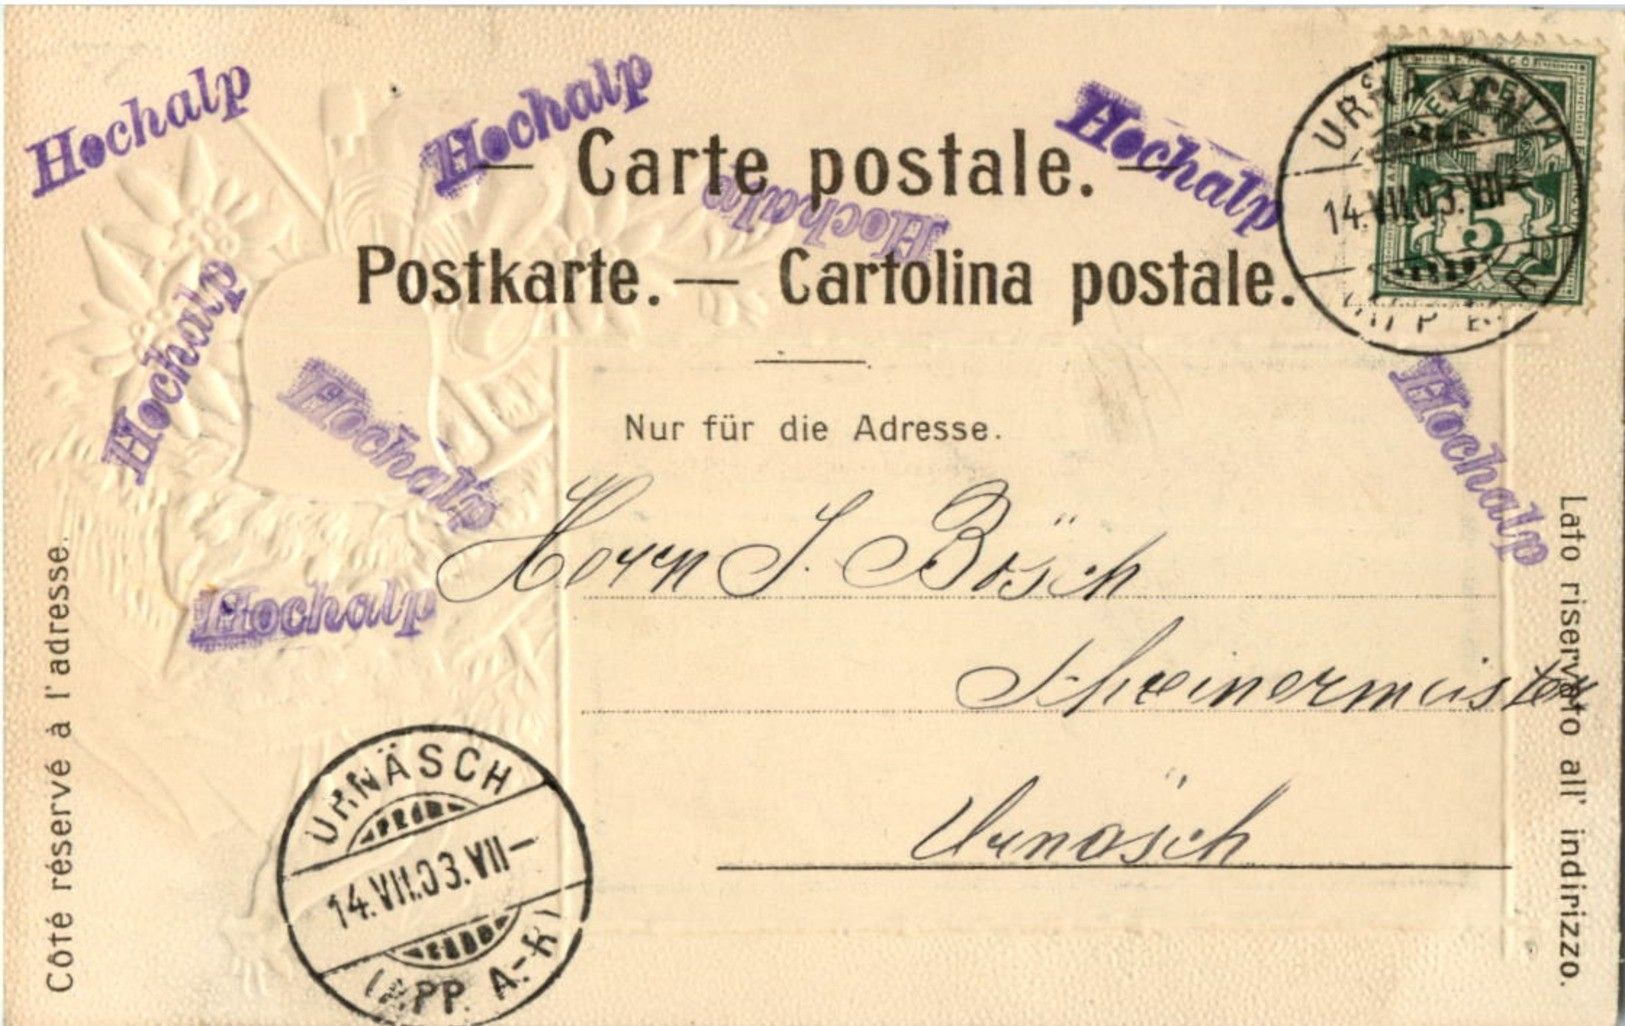 Hochalp
Hochalp
Hochalp
— Carte postale. —
Hochalp
Postkarte. — Cartolina postale.
URNÄSCH
14.VII.03.VIII—
HELVETIA
5
Hochalp
Hochalp
Hochalp
Hochalp
Nur für die Adresse.
Herrn J. Bösch
Schreinermeister
Urnäsch
Côté réservé à l'adresse.
Lato riservato all' indirizzo.
URNÄSCH
14.VII.03.VIII—
(APP. A.-R)